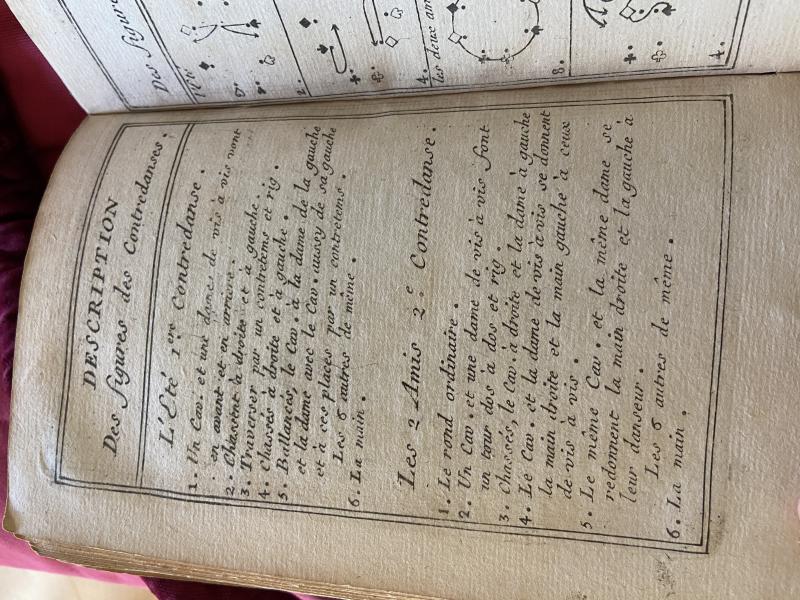 DESCRIPTION
Des figures des Contredanses.
L'Eté 1ere Contredanse.
1. Un Cav. et une dame de vis à vis vont
en avant et en arriere.
2. Chassent à droite et à gauche.
3. Traverser par un contretems et rig.
4. Chassés à droite et à gauche.
5. Ballancés, le Cav. à la dame de la gauche
et la dame avec le Cav. aussy de sa gauche
et à ces places par un contretems.
Les 6 autres de même.
6. La main.
Les 2 Amis 2.e Contredanse.
1. Le rond ordinaire.
2. Un Cav. et une dame de vis à vis font
un tour dos à dos et rig.
3. Chassés, le Cav. à droite et la dame à gauche
4. Le Cav. et la dame de vis à vis se donnent
la main droite et la main gauche à ceux
de vis à vis.
5. Le même Cav. et la même dame se
redonnent la main droite et la gauche à
leur danseur.
Les 6 autres de même.
6. La main.
Des figures
2.
4.
les deux am
8.
4.